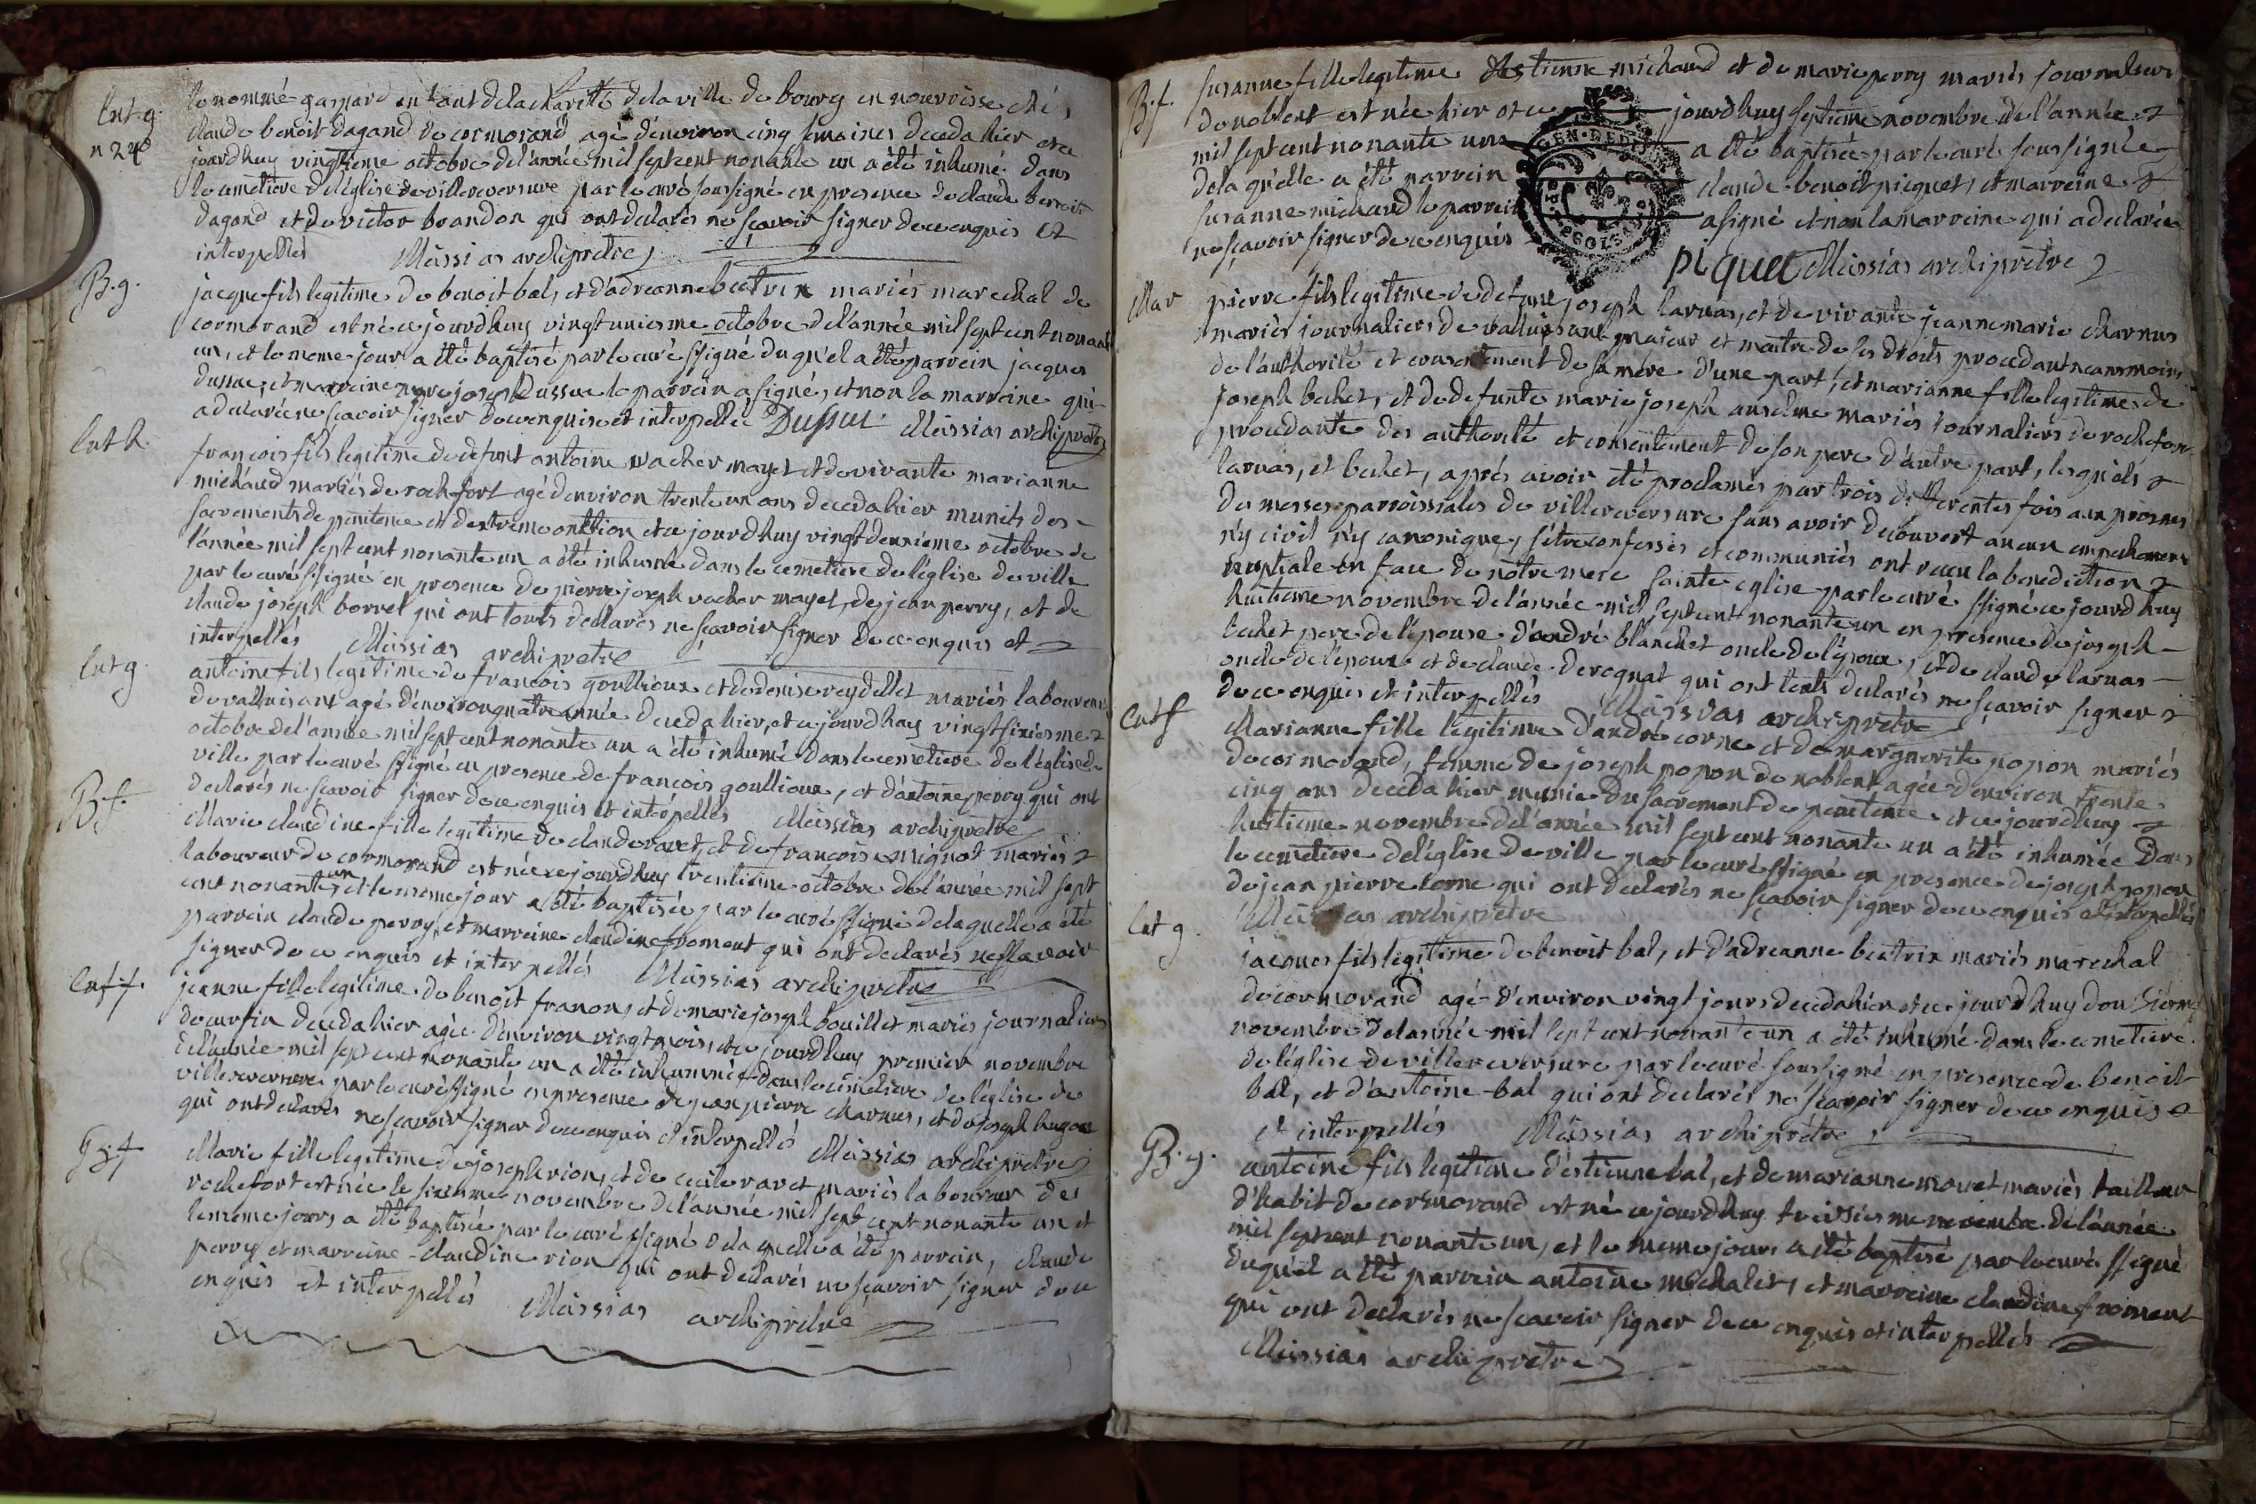 Ent. g.
n 240
le nommé gaspard enfant de la charitté de la ville de bourg en nourrisse chés
claude benoit dagand de cormorand agé d'environ cinq semaines deceda hier et ce
jourdhuy vingtieme octobre de l'année mil sept cent nonante un a été inhumé dans
le cemetiere de l'église de villereversure par le curé soussigné en presence de claude benoit
dagand et de victor brandon qui ont declarés ne sçavoir signer de ce enquis et
interpellés Massias archipretre
B. g.
jacque fils legitime de benoit bal, et d'adreanne beatrix mariés marechal de
cormorand est né ce jourdhuy vingt unieme octobre de l'année mil sept cent nonante
un, et le meme jour a été baptisé par le curé ssigné duquel a été parrein jacques
dussuc, et marreine marie joseph dussuc le parrein a signé, et non la marreine qui
a declarée ne sçavoir signer de ce enquise et interpellée Dussuc Massias archipretre
Ent h.
francois fils legitime de defunt antoine vacher mayet et de vivante marianne
michaud mariés de rochefort agé d'environ trente un ans deceda hier munit des
sacrements de penitence et d'extreme onttion et ce jourdhuy vingt deuxieme octobre de
l'année mil sept cent nonante un a été inhumé dans le cemetiere de l'église de ville
par le curé ssigné en presence de pierre joseph vacher mayet, de jean perry, et de
claude joseph borrel qui ont touts declarés ne sçavoir signer de ce enquis et
interpellés Massias archipretre
Ent g.
antoine fils legitime de francois goullioux et de denise reydellet mariés laboureurs
de valluisant agé d'environ quatre année deceda hier, et ce jourdhuy vingt sixiesme
octobre de l'année mil sept cent nonante un a été inhumé dans le cemetiere de l'église de
ville par le curé ssigné en presence de francois goullioux, et d'antoine perry qui ont
declarés ne sçavoir signer de ce enquis et interpellés Massias archipretre
B. f.
Marie claudine fille legitime de claude ravet, et de francoise mignot mariés
laboureur de cormorand est née ce jourdhuy trentieme octobre de l'année mil sept
cent nonante un et le meme jour a été baptisée par le curé ssigné de laquelle a été
parrein claude perry, et marreine claudine froment qui ont declarés ne sçavoir
signer de ce enquis et interpellés Massias archipretre
Ent f.
jeanne fille legitime de benoit franon, et de marie joseph bouillet mariés journaliers
de curfin deceda hier agée d'environ vingt mois, et ce jourdhuy premier novembre
de l'année mil sept cent nonante un a été inhumée dans le cimetiere de l'église de
villereversure par le curé ssigné en presence de jean pierre charnus, et de joseph hugon
qui ont declarés ne sçavoir signer de ce enquis et interpellés Massias archipretre
Marie fille legitime de joseph rion, et de cecile ravet mariés laboureur de
rochefort est née le sixieme novembre de l'année mil sept cent nonante un et
le meme jours a été baptisée par le curé ssigné de laquelle a été parrein, claude
perry et marreine claudine rion qui ont declarés ne sçavoir signer de ce
enquis et interpellés Massias archipretre
B. f.
suzanne fille legitime d'estienne michaud et de marie perry mariés journaliers
de noblent est née hier et ce jourdhuy septieme novembre de l'année
mil sept cent nonante un a été baptisée par le curé soussigné
de laquelle a été parrein claude benoit piquet, et marreine
suzanne michaud le parrein a signé et non la marreine qui a declarée
ne sçavoir signer de ce enquis
piquet Massias archipretre
Mar
pierre fils legitime de defunt joseph larvas, et de vivante jeanne marie charnus
mariés journaliers de valluisant majeur et maitre de ses droits procedant neansmoins
de l'authorité et consentement de sa mere d'une part, et marianne fille legitime de
joseph bechet, et de defunte marie joseph anselme mariés journaliers de rochefort
procedante des authorité et consentement de son pere d'autre part, lesquels
larvas, et bechet, aprés avoir été proclamés par trois differentes fois aux prosnes
des messes parroissiales de villereversure sans avoir decouvert aucun empechement
n'y civil n'y canonique, s'être confessés et communiés ont recu la benediction
nuptiale en face de notre mere sainte eglise par le curé ssigné ce jourdhuy
huitieme novembre de l'année mil sept cent nonante un en presence de joseph
bechet pere de l'épouse d'andré blanchet oncle de l'epoux, et de claude larvas
oncle de l'epoux et de claude derognat qui ont touts declarés ne sçavoir signer
de ce enquis et interpellés Massias archipretre
Ent f
Marianne fille legitime d'andré corne et de marguerite popon mariés
de cormorand, femme de joseph popon de noblent agée d'environ trente
cinq ans deceda hier munie du sacrement de penitence et ce jourdhuy
huitieme novembre de l'année mil sept cent nonante un a été inhumée dans
le cemetiere de l'église de ville par le curé ssigné en presence de joseph popon
de jean pierre corne qui ont declarés ne sçavoir signer de ce enquis et interpellés
Massias archipretre
Ent g.
jacques fils legitime de benoit bal, et d'adreanne beatrix mariés marechal
de cormorand agé d'environ vingt jours deceda hier et ce jourdhuy douzieme
novembre de l'année mil sept cent nonante un a été inhumé dans le cemetiere
de l'église de villereversure par le curé soussigné en presence de benoit
bal, et d'antoine bal qui ont declarés ne sçavoir signer de ce enquis
et interpellés Massias archipretre
B. g.
antoine fils legitime d'estienne bal, et de marianne mouet mariés tailleur
d'habit de cormorand est né ce jourdhuy treisiesme novembre de l'année
mil sept cent nonante un, et le meme jour a été baptisé par le curé ssigné
duquel a été parrein antoine michalet, et marreine claudine froment
qui ont declarés ne sçavoir signer de ce enquis et interpellés
Massias archipretre